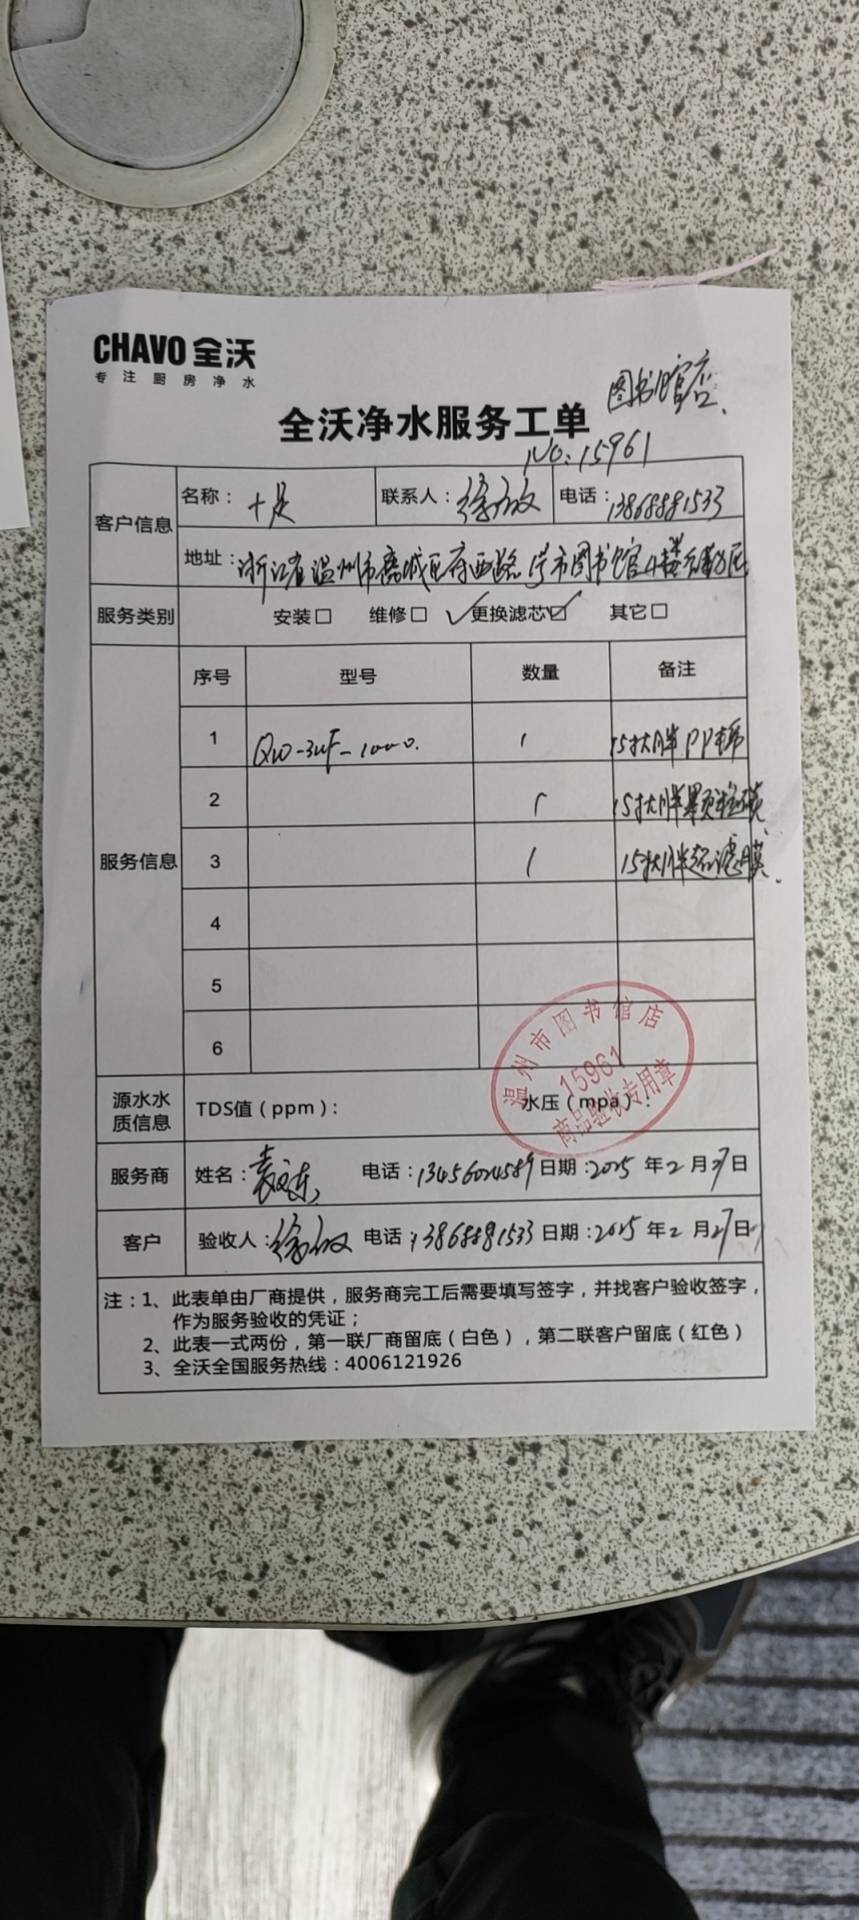 CHAVO 全沃
专注厨房净水
图书馆店
全沃净水服务工单
NO:15961
客户信息 名称： 十足 联系人：徐敏 电话：13868881533
地址：浙江省温州市鹿城区府西路 号市图书馆4楼
服务类别 安装□ 维修□ ✓更换滤芯☑ 其它□
服务信息 序号 型号 数量 备注
1 QW-3UF-1000. 1 15寸大胖PP棉
2 1 15寸大胖颗粒碳
3 1 15寸大胖超滤膜
4
5
6
温州市图书馆店
15961
商品验收专用章
源水水质信息 TDS值（ppm）： 水压（mpa）：
服务商 姓名：袁 电话：13456024589 日期：2025 年 2 月 27 日
客户 验收人：徐敏 电话：13868881533 日期：2025 年 2 月 27 日
注：1、此表单由厂商提供，服务商完工后需要填写签字，并找客户验收签字，
作为服务验收的凭证；
2、此表一式两份，第一联厂商留底（白色），第二联客户留底（红色）
3、全沃全国服务热线：4006121926